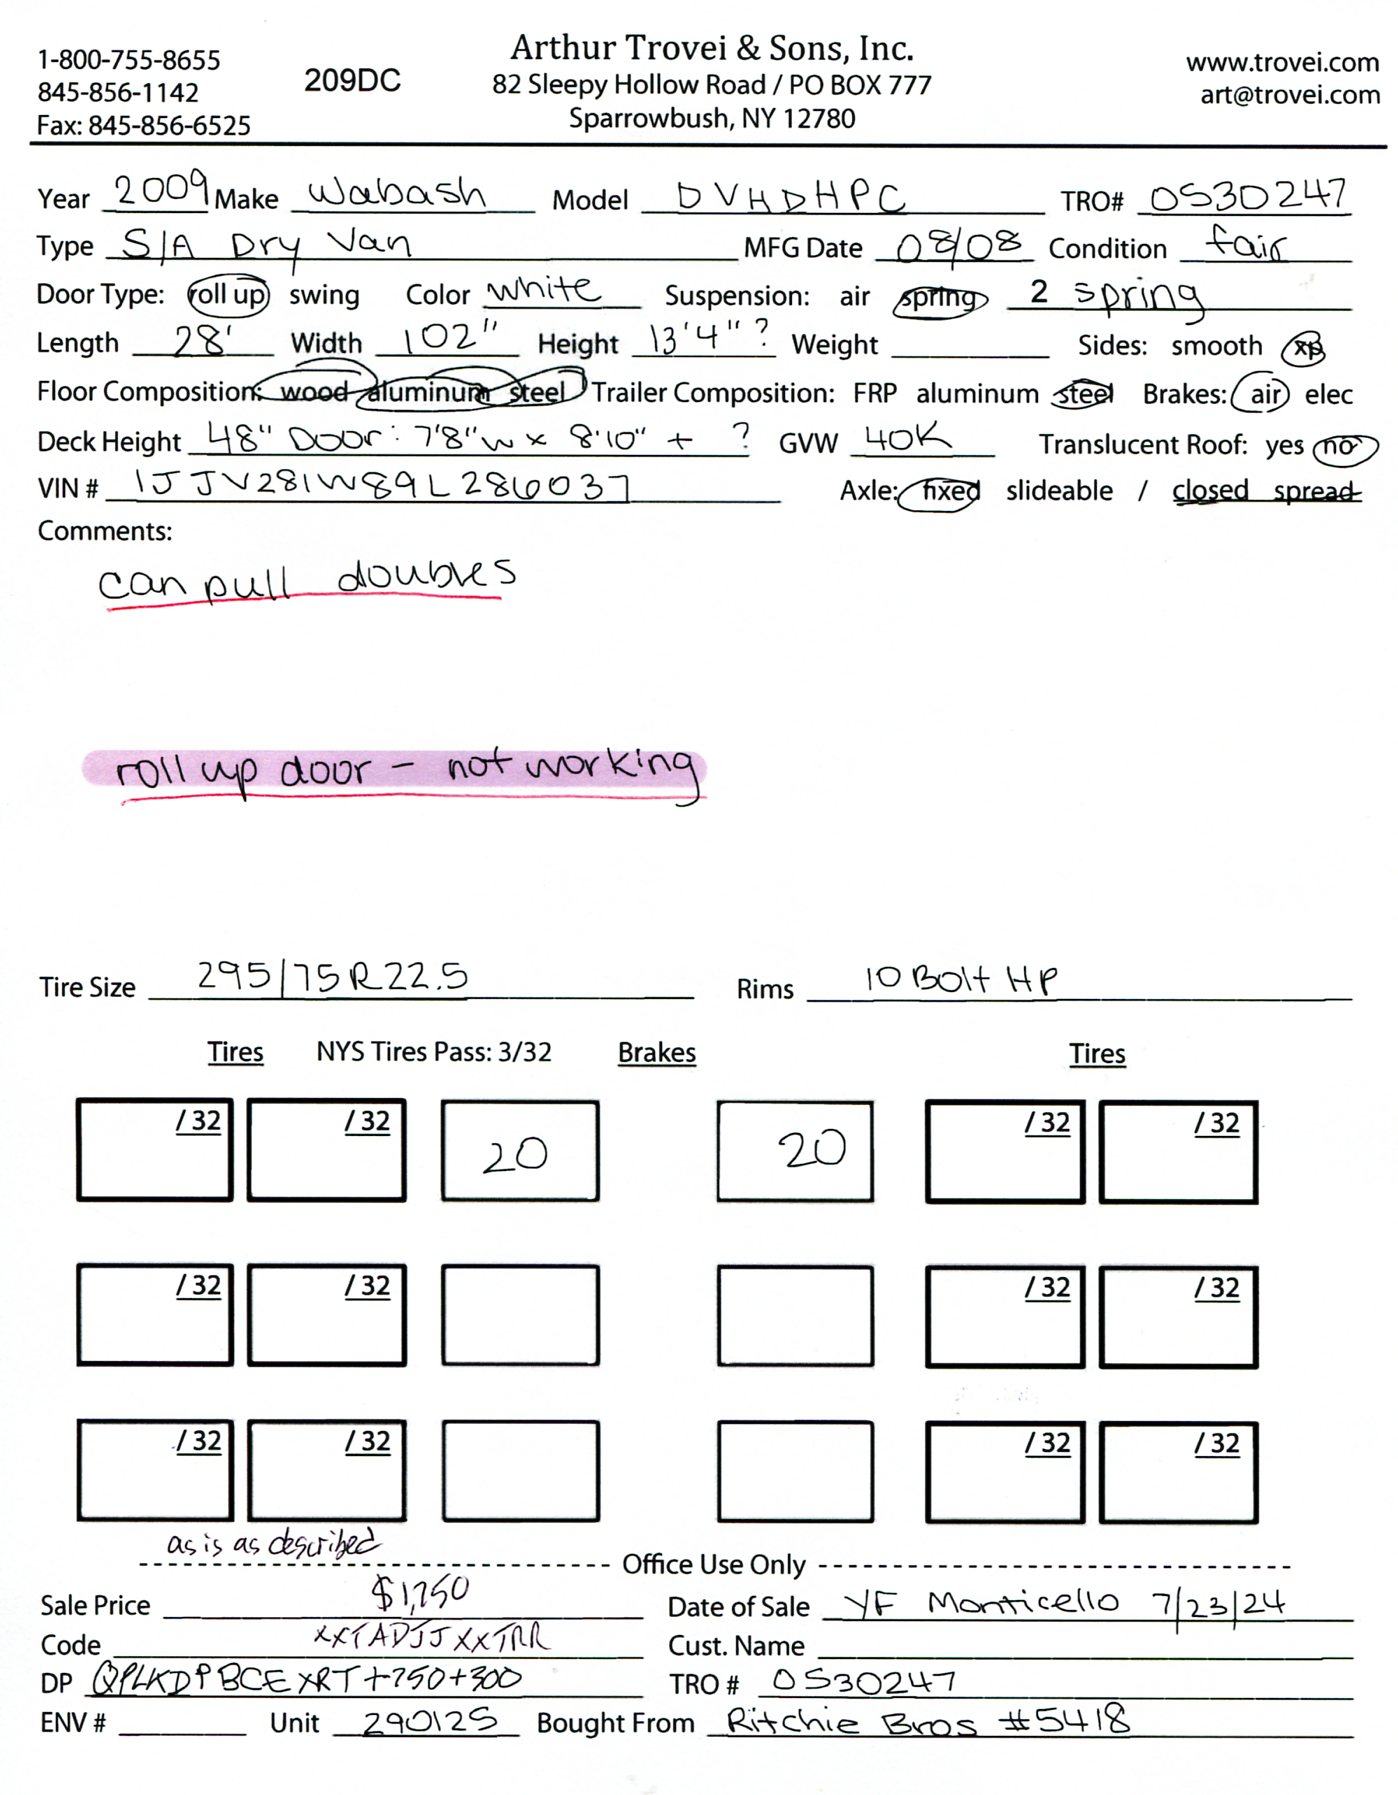 1-800-755-8655
845-856-1142
Fax: 845-856-6525
209DC
Arthur Trovei & Sons, Inc.
82 Sleepy Hollow Road / PO BOX 777
Sparrowbush, NY 12780
www.trovei.com
art@trovei.com
Year 2009 Make Wabash Model DVHDHPC TRO# 0S30247
Type S/A Dry Van MFG Date 08/08 Condition fair
Door Type: roll up swing Color white Suspension: air spring 2 spring
Length 28' Width 102" Height 13'4"? Weight Sides: smooth
Floor Composition: wood aluminum steel Trailer Composition: FRP aluminum steel Brakes: air elec
Deck Height 48" Door: 7'8"w x 8'10" + ? GVW 40K Translucent Roof: yes no
VIN # 1JJV281W89L286037 Axle: fixed slideable / closed spread
Comments:
can pull doubles
roll up door - not working
Tire Size 295/75R22.5 Rims 10 Bolt HP
Tires NYS Tires Pass: 3/32 Brakes Tires
/32 /32 20 20 /32 /32
/32 /32 /32 /32
/32 /32 /32 /32
as is as described
Office Use Only
Sale Price $1,750 Date of Sale YF Monticello 7/23/24
Code XXTADJJXXTRR Cust. Name
DP QPLKDPBCEXRT+750+300 TRO # 0S30247
ENV # Unit 290125 Bought From Ritchie Bros #5418